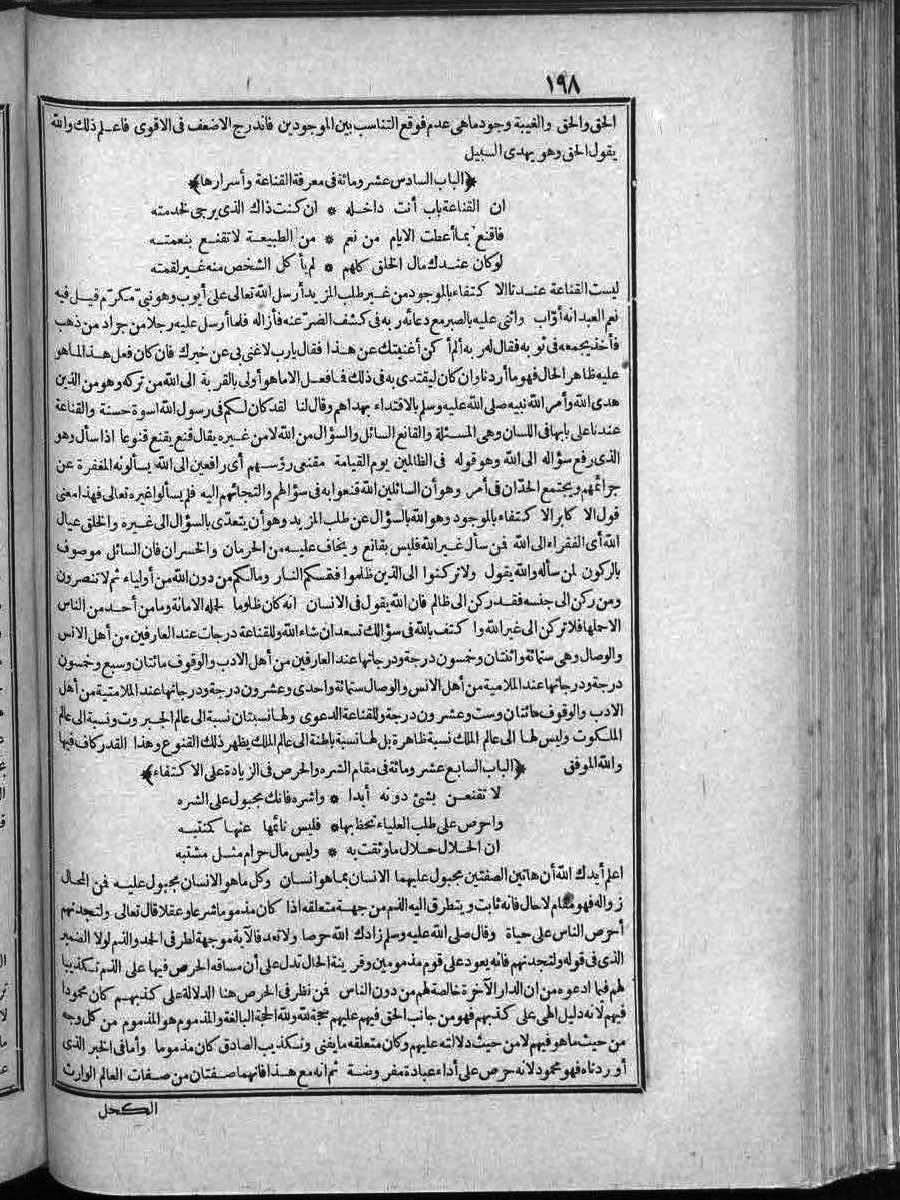 ١٩٨
الحق والحق والغيبة وجود ماهى عدم فوقع التناسب بين الموجودين فاندرج الاضعف فى الاقوى فاعلم ذلك والله
يقول الحق وهو يهدى السبيل
﴿الباب السادس عشر ومائة فى معرفة القناعة وأسرارها﴾
ان القناعة باب أنت داخله * ان كنت ذاك الذى يرجى لخدمته
فاقنع بما أعطت الايام من نعم * من الطبيعة لا تقنع بنعمته
لو كان عندك مال الخلق كلهم * لم يأكل الشخص منه غير لقمته
ليست القناعة عندنا الا كتفاء بالموجود من غير طلب المزيد أرسل الله تعالى على أيوب وهو نبىّ مكرّم قيل فيه
نعم العبد انه أوّاب واثنى عليه بالصبر مع دعائه ربه فى كشف الضرّ عنه فأزاله فلما أرسل عليه رجلا من جراد من ذهب
فأخذ يجمعه فى ثوبه فقال له ربه ألم أكن أغنيتك عن هذا فقال يارب لا غنى بى عن خيرك فان كان فعل هذا لما هو
عليه ظاهر الحال فهو ما أردنا وان كان ليقتدى به فى ذلك فما فعل الا ما هو أولى بالقربة الى الله من تركه وهو من الذين
هدى الله وأمر الله نبيه صلى الله عليه وسلم بالاقتداء بهداهم وقال لنا لقد كان لكم فى رسول الله اسوة حسنة والقناعة
عندنا على بابها فى اللسان وهى المسئلة والقانع السائل والسؤال من الله لا من غيره يقال قنع يقنع قنوعا اذا سأل وهو
الذى رفع سؤاله الى الله وهو قوله فى الظالمين يوم القيامة مقنعى رؤسهم أى رافعين الى الله يسألونه المغفرة عن
جرائمهم ويجتمع الحدّان فى أمر وهو أن السائلين الله قنعوا به فى سؤالهم والتجائهم اليه فلم يسألوا غيره تعالى فهذا معنى
قول الا كابر الا كتفاء بالموجود وهو الله بالسؤال عن طلب المزيد وهو أن يتعدّى بالسؤال الى غيره والخلق عيال
الله أى الفقراء الى الله فمن سأل غير الله فليس بقانع ويخاف عليه من الحرمان والخسران فان السائل موصوف
بالركون لمن سأله والله يقول ولا تركنوا الى الذين ظلموا فتمسكم النار ومالكم من دون الله من أولياء ثم لا تنصرون
ومن ركن الى جنسه فقد ركن الى ظالم فان الله يقول فى الانسان انه كان ظلوما لحله الامانة وما من أحد من الناس
الاحملها فلا تركن الى غير الله وا كتف بالله فى سؤالك تسعد ان شاء الله وللقناعة درجات عند العارفين من أهل الانس
والوصال وهى ستمائة واثنتان وخمسون درجة ودرجاتها عند العارفين من أهل الادب والوقوف مائتان وسبع وخمسون
درجة ودرجاتها عند الملامية من أهل الانس والوصال ستمائة واحدى وعشرون درجة ودرجاتها عند الملامتية من أهل
الادب والوقوف مائتان وست وعشرون درجة وللقناعة الدعوى ولها نسبتان نسبة الى عالم الجبروت ونسبة الى عالم
الملكوت وليس لها الى عالم الملك نسبة ظاهرة بل لها نسبة باطنة الى عالم الملك يظهر ذلك القنوع وهذا القدر كاف فيها
والله الموفق ﴿الباب السابع عشر ومائة فى مقام الشره والحرص فى الزيادة على الاكتفاء﴾
لا تقنعن بشئ دونه أبدا * واشره فانك مجبول على الشره
واحرص على طلب العلياء تحظ بها * فليس نائمها عنها كنتبه
ان الحلال حلال ما وثقت به * وليس مال حرام مثل مشتبه
اعلم أيدك الله أن هاتين الصفتين مجبول عليهما الانسان بما هو انسان وكل ما هو الانسان مجبول عليه فمن المحال
زواله فهو مقام لا حال فانه ثابت ويتطرق اليه الذم من جهة متعلقه اذا كان مذموما شرعا وعقلا قال تعالى ولتجدنهم
أحرص الناس على حياة وقال صلى الله عليه وسلم زادك الله حرصا ولا تعد فالآية موجهة لطرفى الحد والذم لولا الضمير
الذى فى قوله ولتجدنهم فانه يعود على قوم مذمومين وقرينة الحال تدل على أن مساقه الحرص فيها على الذم تكذيبا
لهم فيما ادعوه من ان الدار الآخرة خالصة لهم من دون الناس فمن نظر فى الحرص هنا الدلالة على كذبهم كان محمودا
فيهم لانه دليل الهى على كذبهم فهو من جانب الحق فيهم عليهم حجة لله ولله الحجة البالغة والمذموم هو المذموم من كل وجه
من حيث ما هو فيهم لا من حيث دلالته عليهم وكان متعلقه ما يفنى وتكذيب الصادق كان مذموما وأما فى الخبر الذى
أوردناه فهو محمود لانه حرص على أداء عبادة مفروضة ثم انه مع هذا فانهما صفتان من صفات العالم الوارث
الكحل